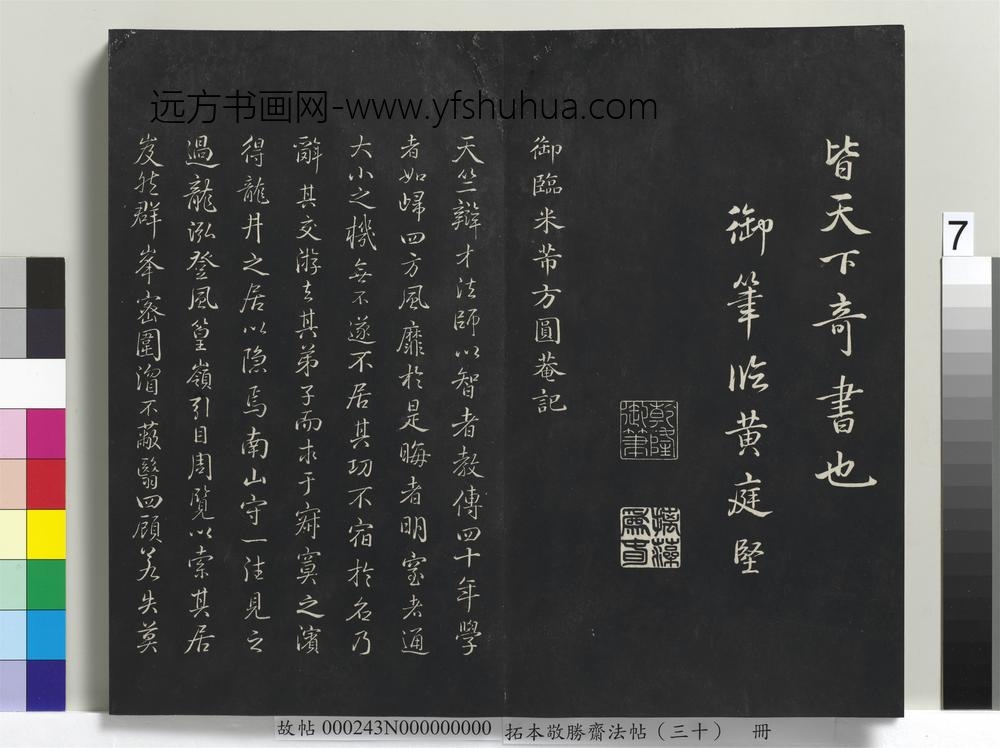 远方书画网-www.yfshuhua.com
皆天下奇書也
御筆臨黄庭堅
乾隆御筆
御臨米芾方圓菴記
天竺辯才法師以智者教傳四十年學
者如歸四方風靡於是晦者明窒者通
大小之機無不遂不居其功不宿於名乃
辭其交游去其弟子而求于寂寞之濱
得龍井之居以隐焉南山守一往見之
過龍泓登風篁嶺引目周覽以索其居
岌然群峯密圍溜不蔽翳四顧若失莫
7
故帖 000243N000000000 拓本敬勝齋法帖（三十） 冊